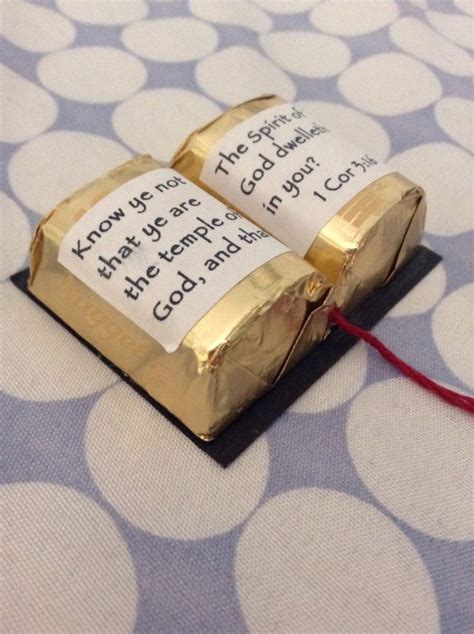 Know ye not
that ye are
the temple of
God, and that
The Spirit of
God dwelleth
in you?
1 Cor 3:16